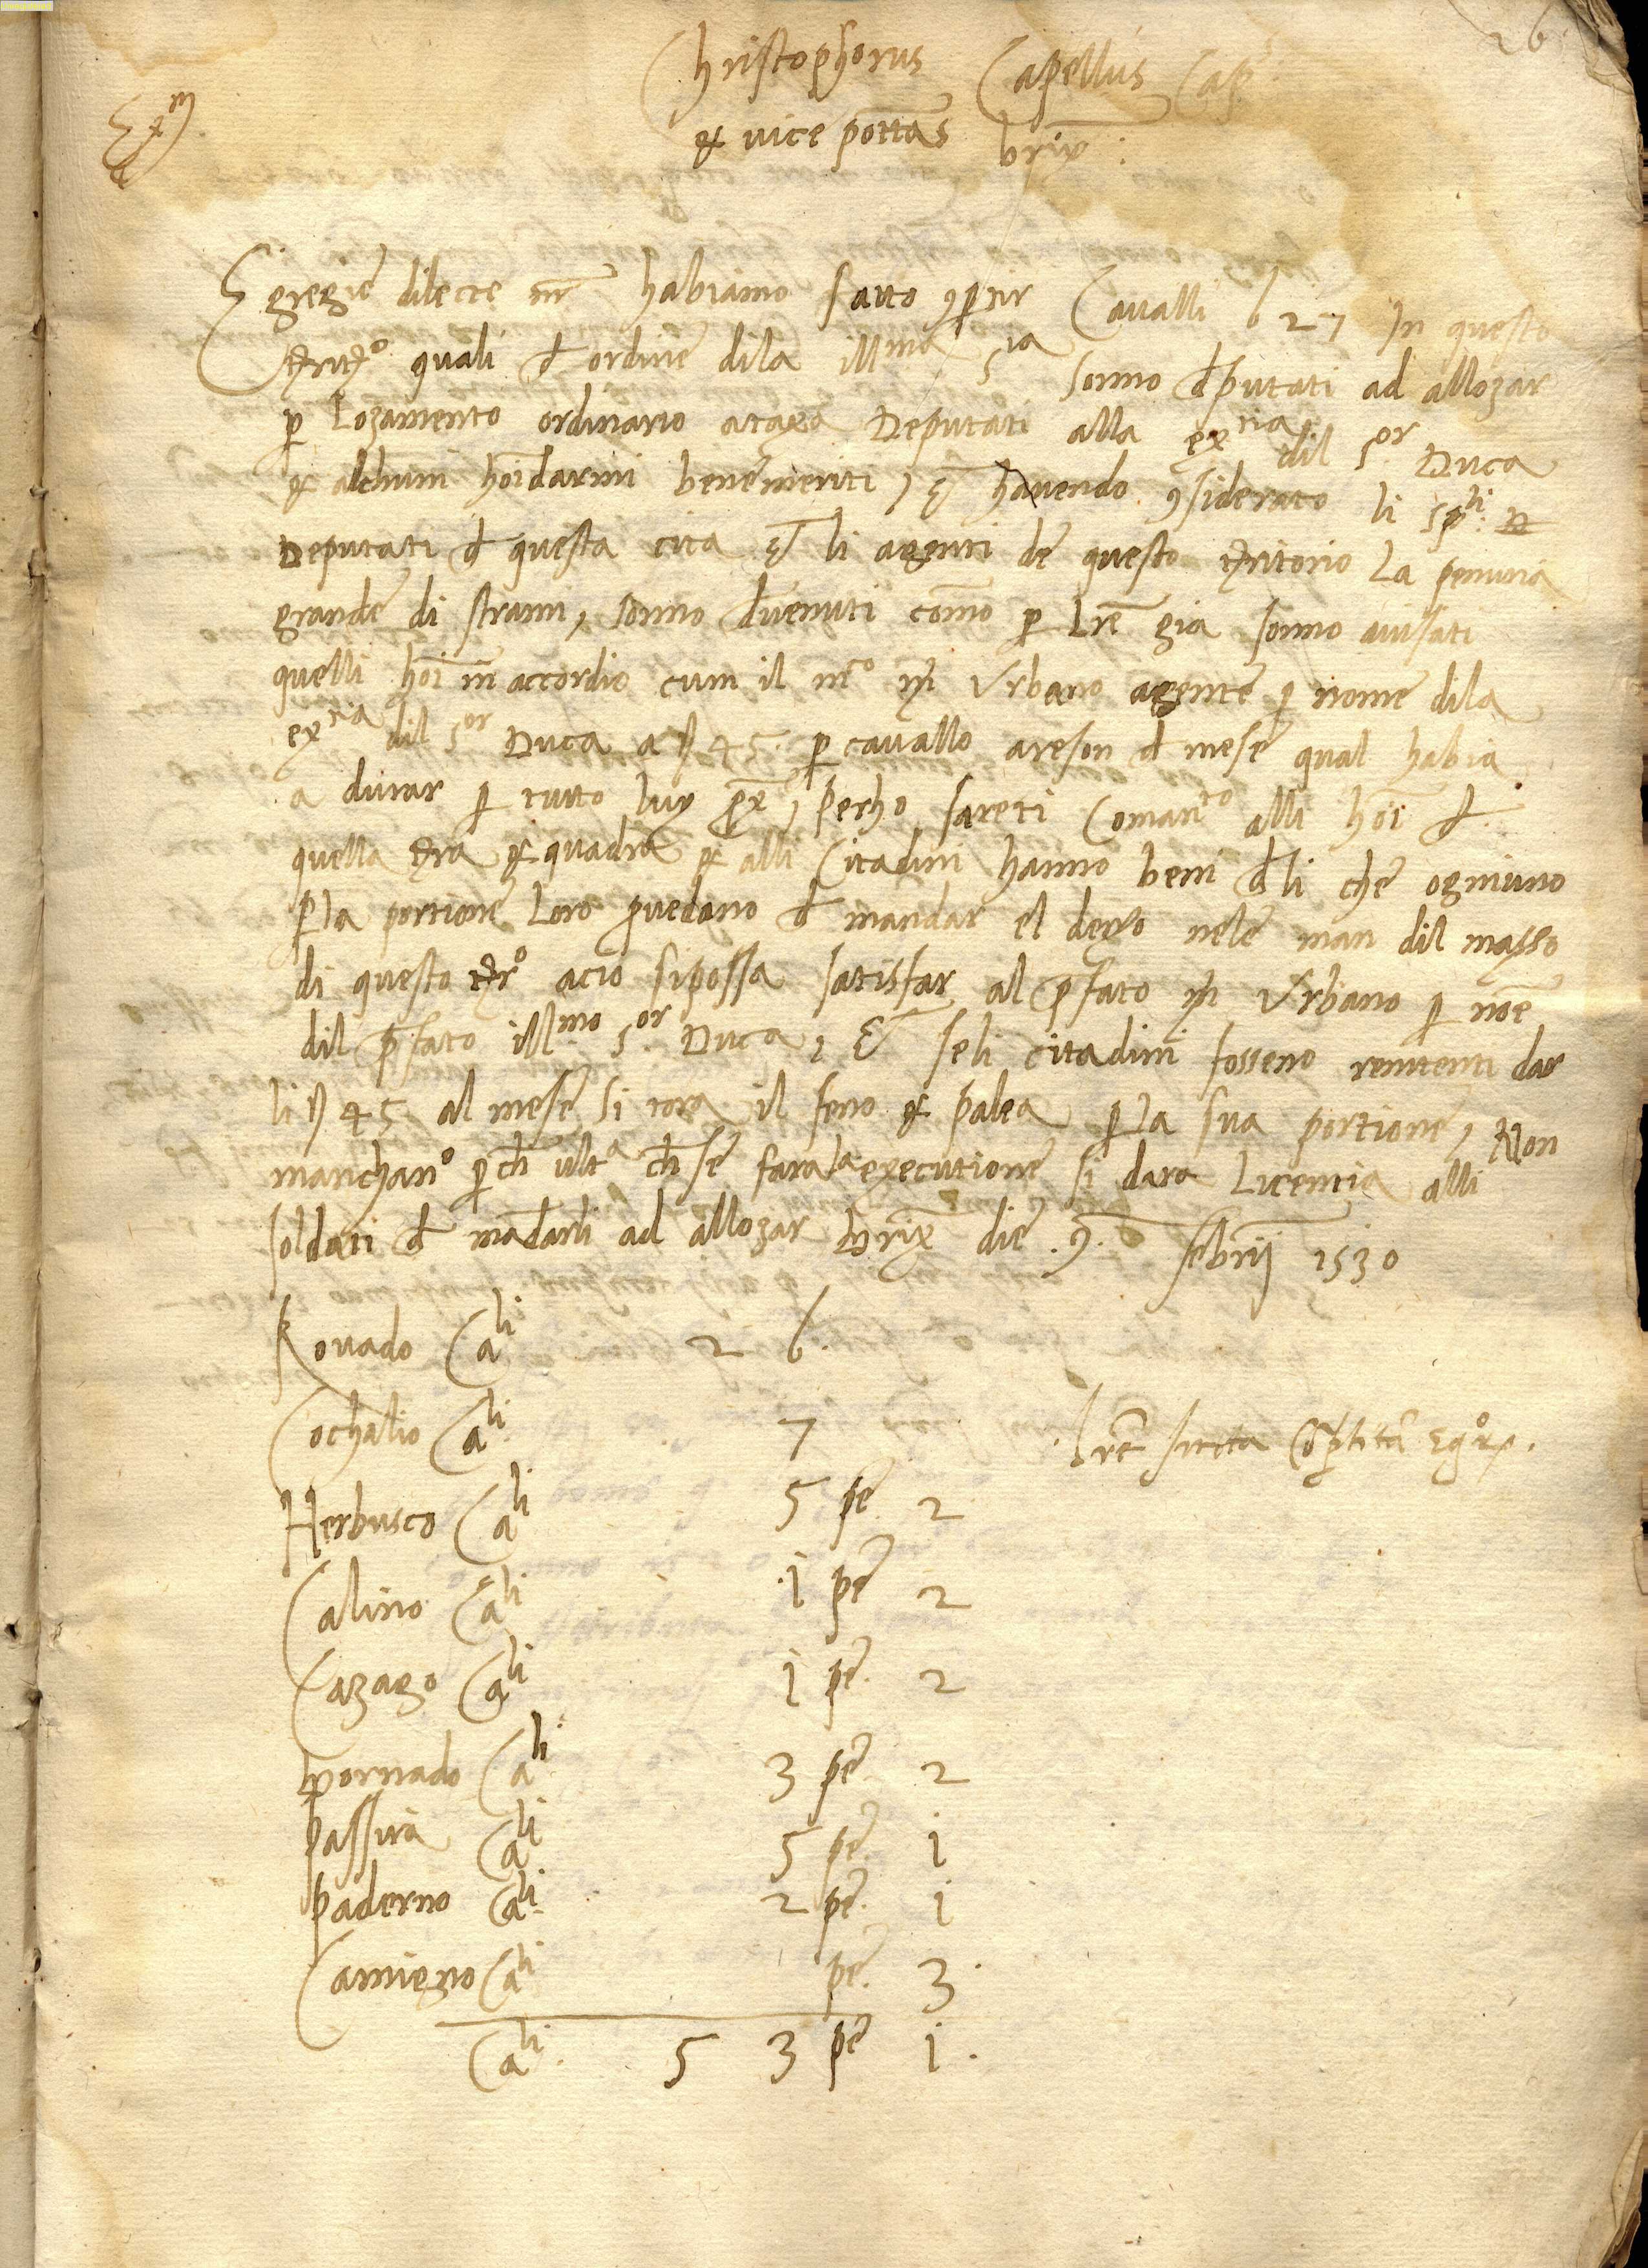 26
Christophorus Capellus Cap.s
& vice pottas brix:
Egregie dilecte nr habiamo fatto ꝯꝑtir Cavalli 627 In questo
territo quali d ordine dila illma Sia sonno dputati ad allozar
ꝑ Lozamento ordinario ataxa Deputati alla extia dil Sor Duca
& alchuni hoidarmi benemeriti, Et havendo ꝯsiderato li spli
Deputati d questa cita Et li agenti de questo territorio La penuria
grande di strami, sonno dvenuti como ꝑ Lre gia sonno avisati
quelli hoi in accordio cum il mco mr Vrbano agente ꝑ nome dila
extia dil Sor Duca a 45. ꝑ cavallo areson d mese qual habia
a durar ꝑ tutto luy prox, perho fareti Comanto alli hoi d
quella terra & quadra & alli Citadini hanno beni dli che ogniuno
ꝑ la portione Loro ꝓvedano d mandar el dero nele man dil masso
di questo tero acio si possa satisfar al pfato mr Vrbano ꝑ noe
dil pfato illmo Sor Duca, Et se li citadini fosseno renitenti dar
li 45 al mese si tora il feno & palea ꝑ la sua portione, Non
manchano ꝑch ulta ch se fara la executione si dara Licentia alli
soldati d madarli ad allozar Brix die .9. febrij 1530
Rovado Cali 26.
Cochalio Cali 7
Herbusco Cali 5 pe 2
Calino Cali 1 pe 2
Cazago Cali 1 pe. 2
Bornado Cali 3 pe. 2
Passira Cali 5 pe. 1
Paderno Cali 2 pe. 1
Camigno Cali pe. 3.
Cali. 53 pe 1.